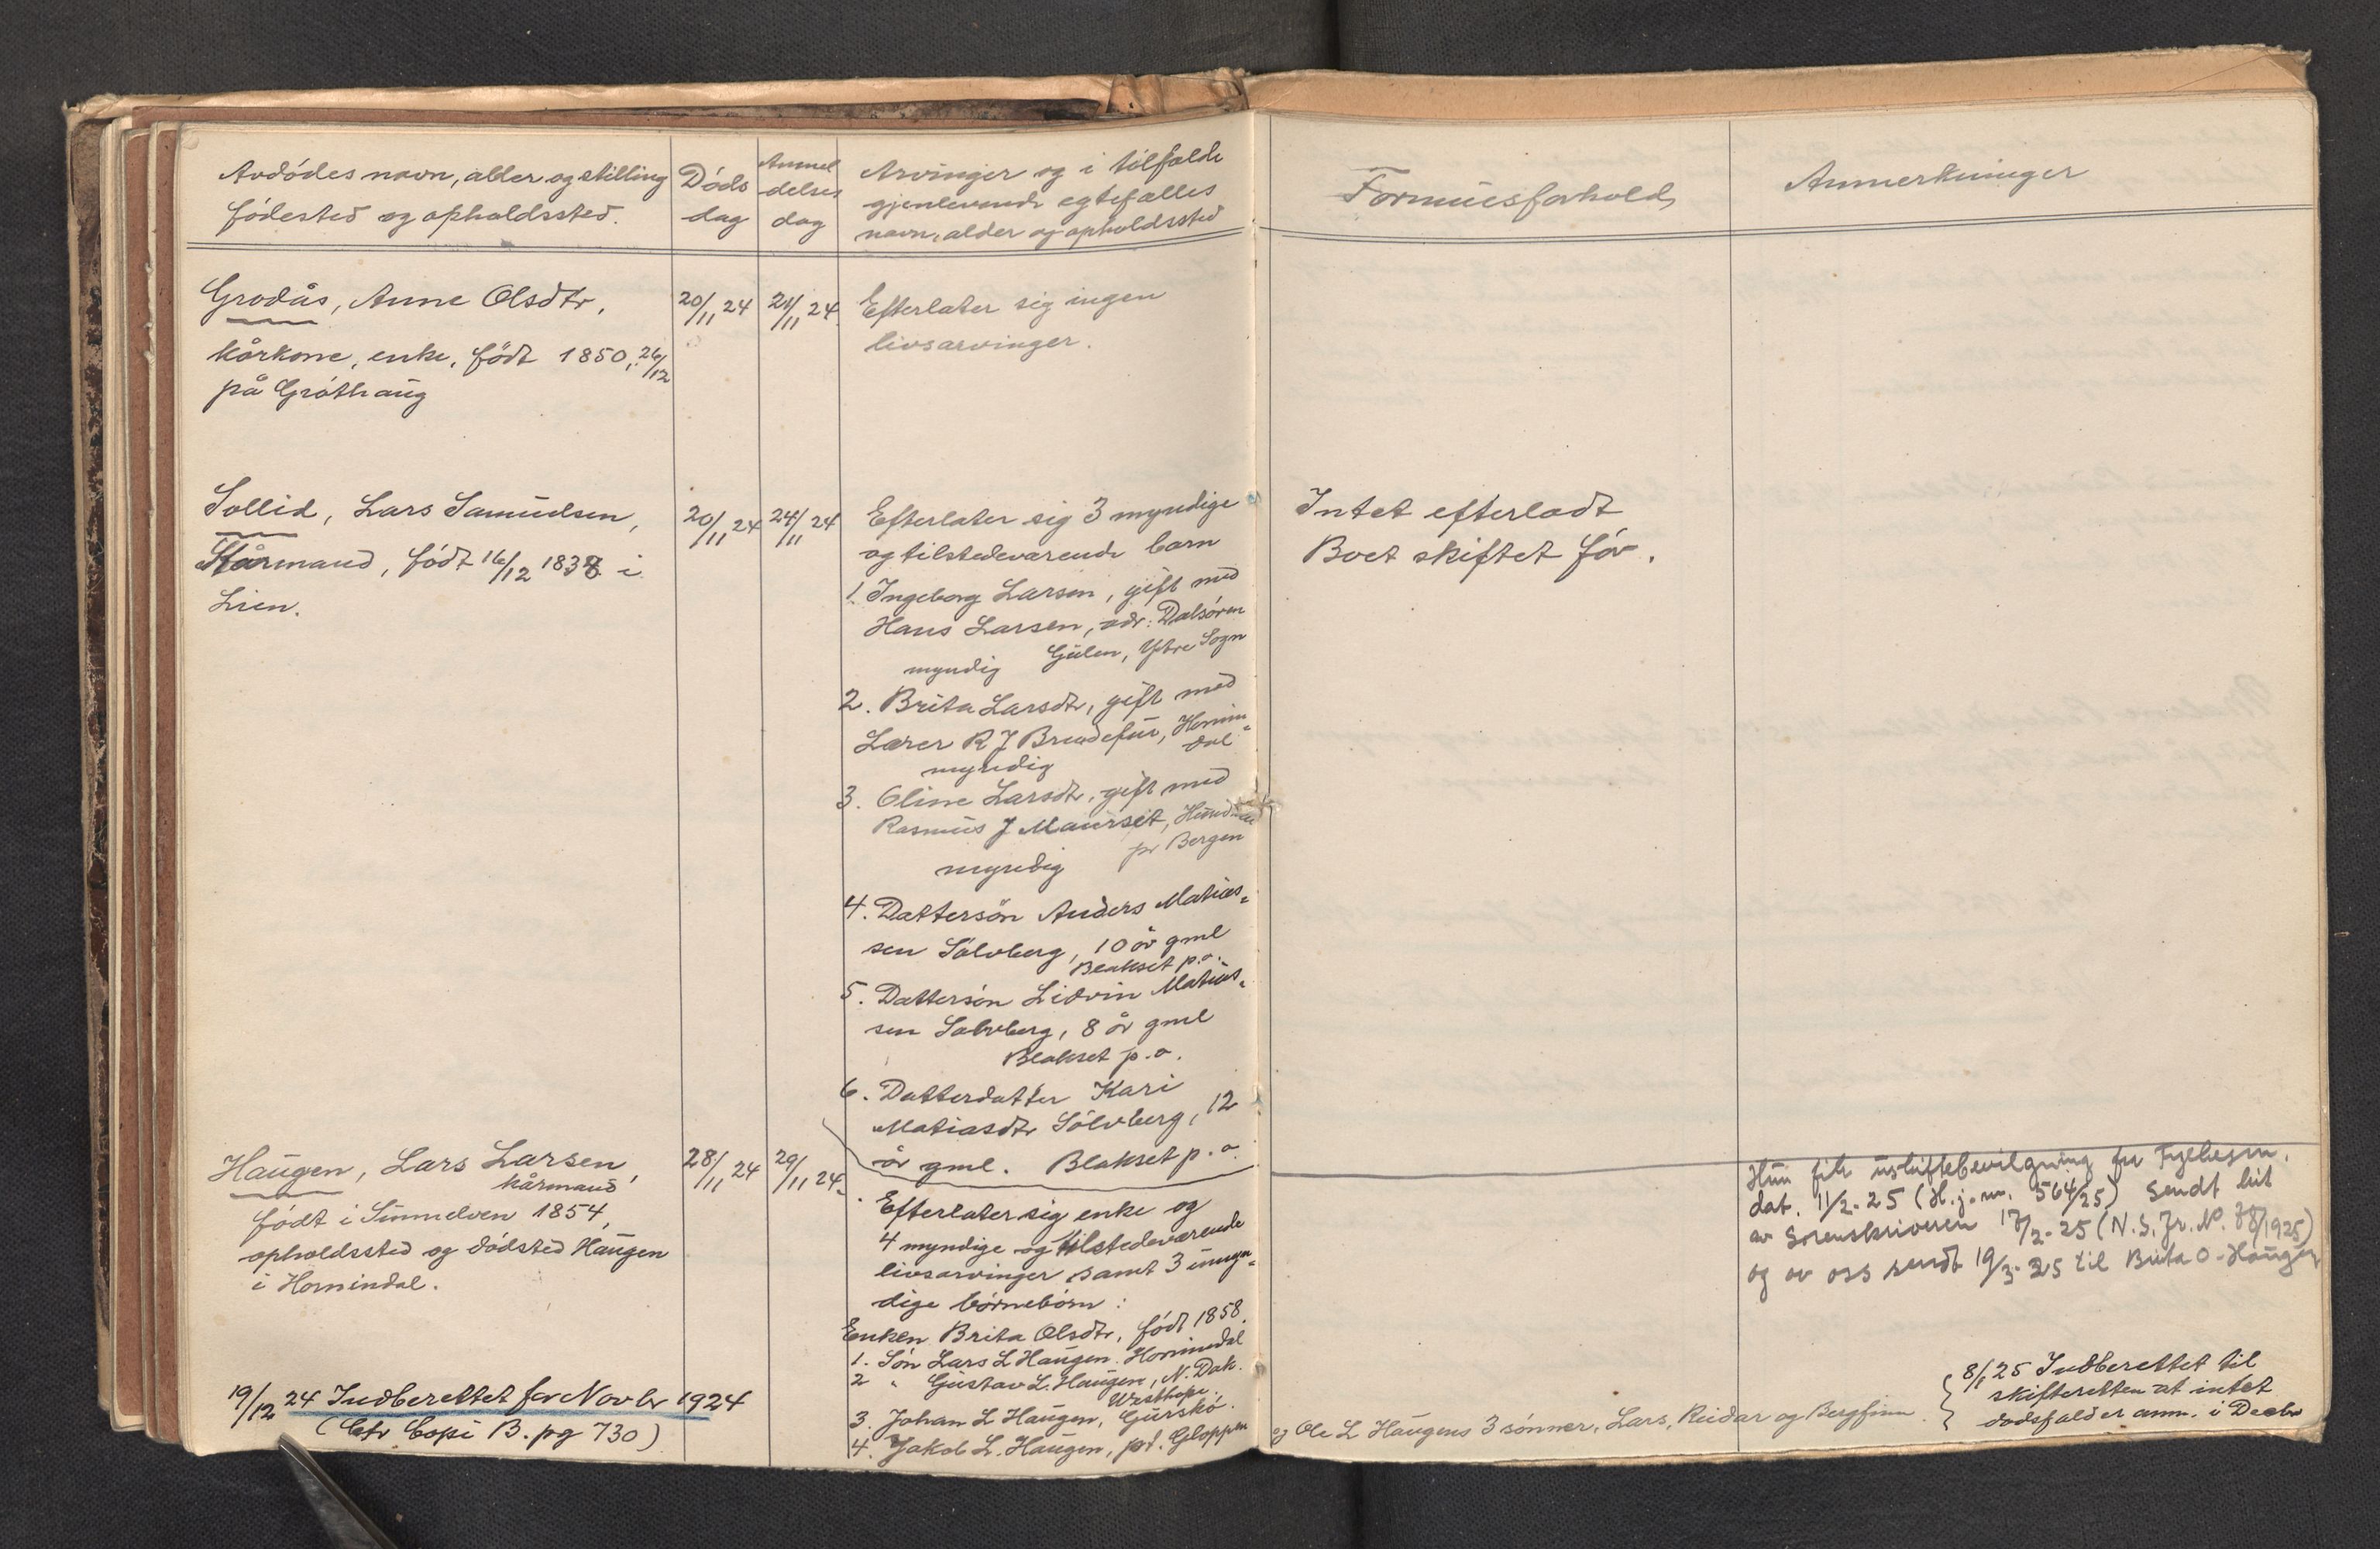 Avdödes navn, alder og stilling
födested og opholdssted.
Döds
dag
Anmel
delses
dag
Arvinger og i tilfælde
gjenlevende egtefælles
navn, alder og opholdssted
Formuesforhold
Anmerkninger
Grodås, Anne Olsdtr,
kårkone, enke, födt 1850, 26/12
på Gröthaug
20/11 24
21/11 24
Efterlater sig ingen
livsarvinger.
Sollid, Lars Samuelsen,
Kårmand, födt 16/12 1838 i
Lien.
20/11 24
24/11 24
Efterlater sig 3 myndige
og tilstedeværende barn
1. Ingeborg Larsen, gift med
Hans Larsen, adr: Dalsören
myndig Gulen, Ytre Sogn
2. Brita Larsdtr, gift med
Lærer R J Brudefur, Hornin-
dal
myndig
3. Oline Larsdtr, gift med
Rasmus J Maurset,
pr Bergen
myndig
4. Dattersön Anders Matias-
sen Sölvberg, 10 år gml
Blakset p.o.
5. Dattersön Lidvin Matias-
sen Sölvberg, 8 år gml
Blakset p.o.
6. Datterdatter Kari
Matiasdtr Sölvberg, 12
år gml. Blakset p.o.
Intet efterladt
Boet skiftet för.
Haugen, Lars Larsen,
kårmand
födt i Sunnelven 1854,
opholdssted og dödsted Haugen
i Hornindal.
28/11 24
29/11 24
Efterlater sig enke og
4 myndige og tilstedeværende
livsarvinger samt 3 umyn-
dige börnebörn:
Enken Brita Olsdtr, födt 1858.
1. Sön Lars L Haugen. Hornindal
2 " Gustav L. Haugen, N. Dak.
Westhope.
3. Johan L Haugen, Gurskö.
4. Jakob L. Haugen, pt. Gloppen
og Ole L Haugens 3 sönner, Lars, Reidar og Bergfinn
Hun fik uskiftebevilgning fra Fylkesm.
dat. 11/2-25 (H. j. nr. 564/25) sendt hit
av Sorenskriveren 17/2-25 (N.S. Jr. No. 78/1925)
og av oss sendt 19/3-25 til Brita O. Haugen
19/12 24 Indberettet for Novbr 1924
(Cfr Copi B. pg 730)
8/1 25 Indberettet til
skifteretten at intet
dödsfald er anm. i Decbr